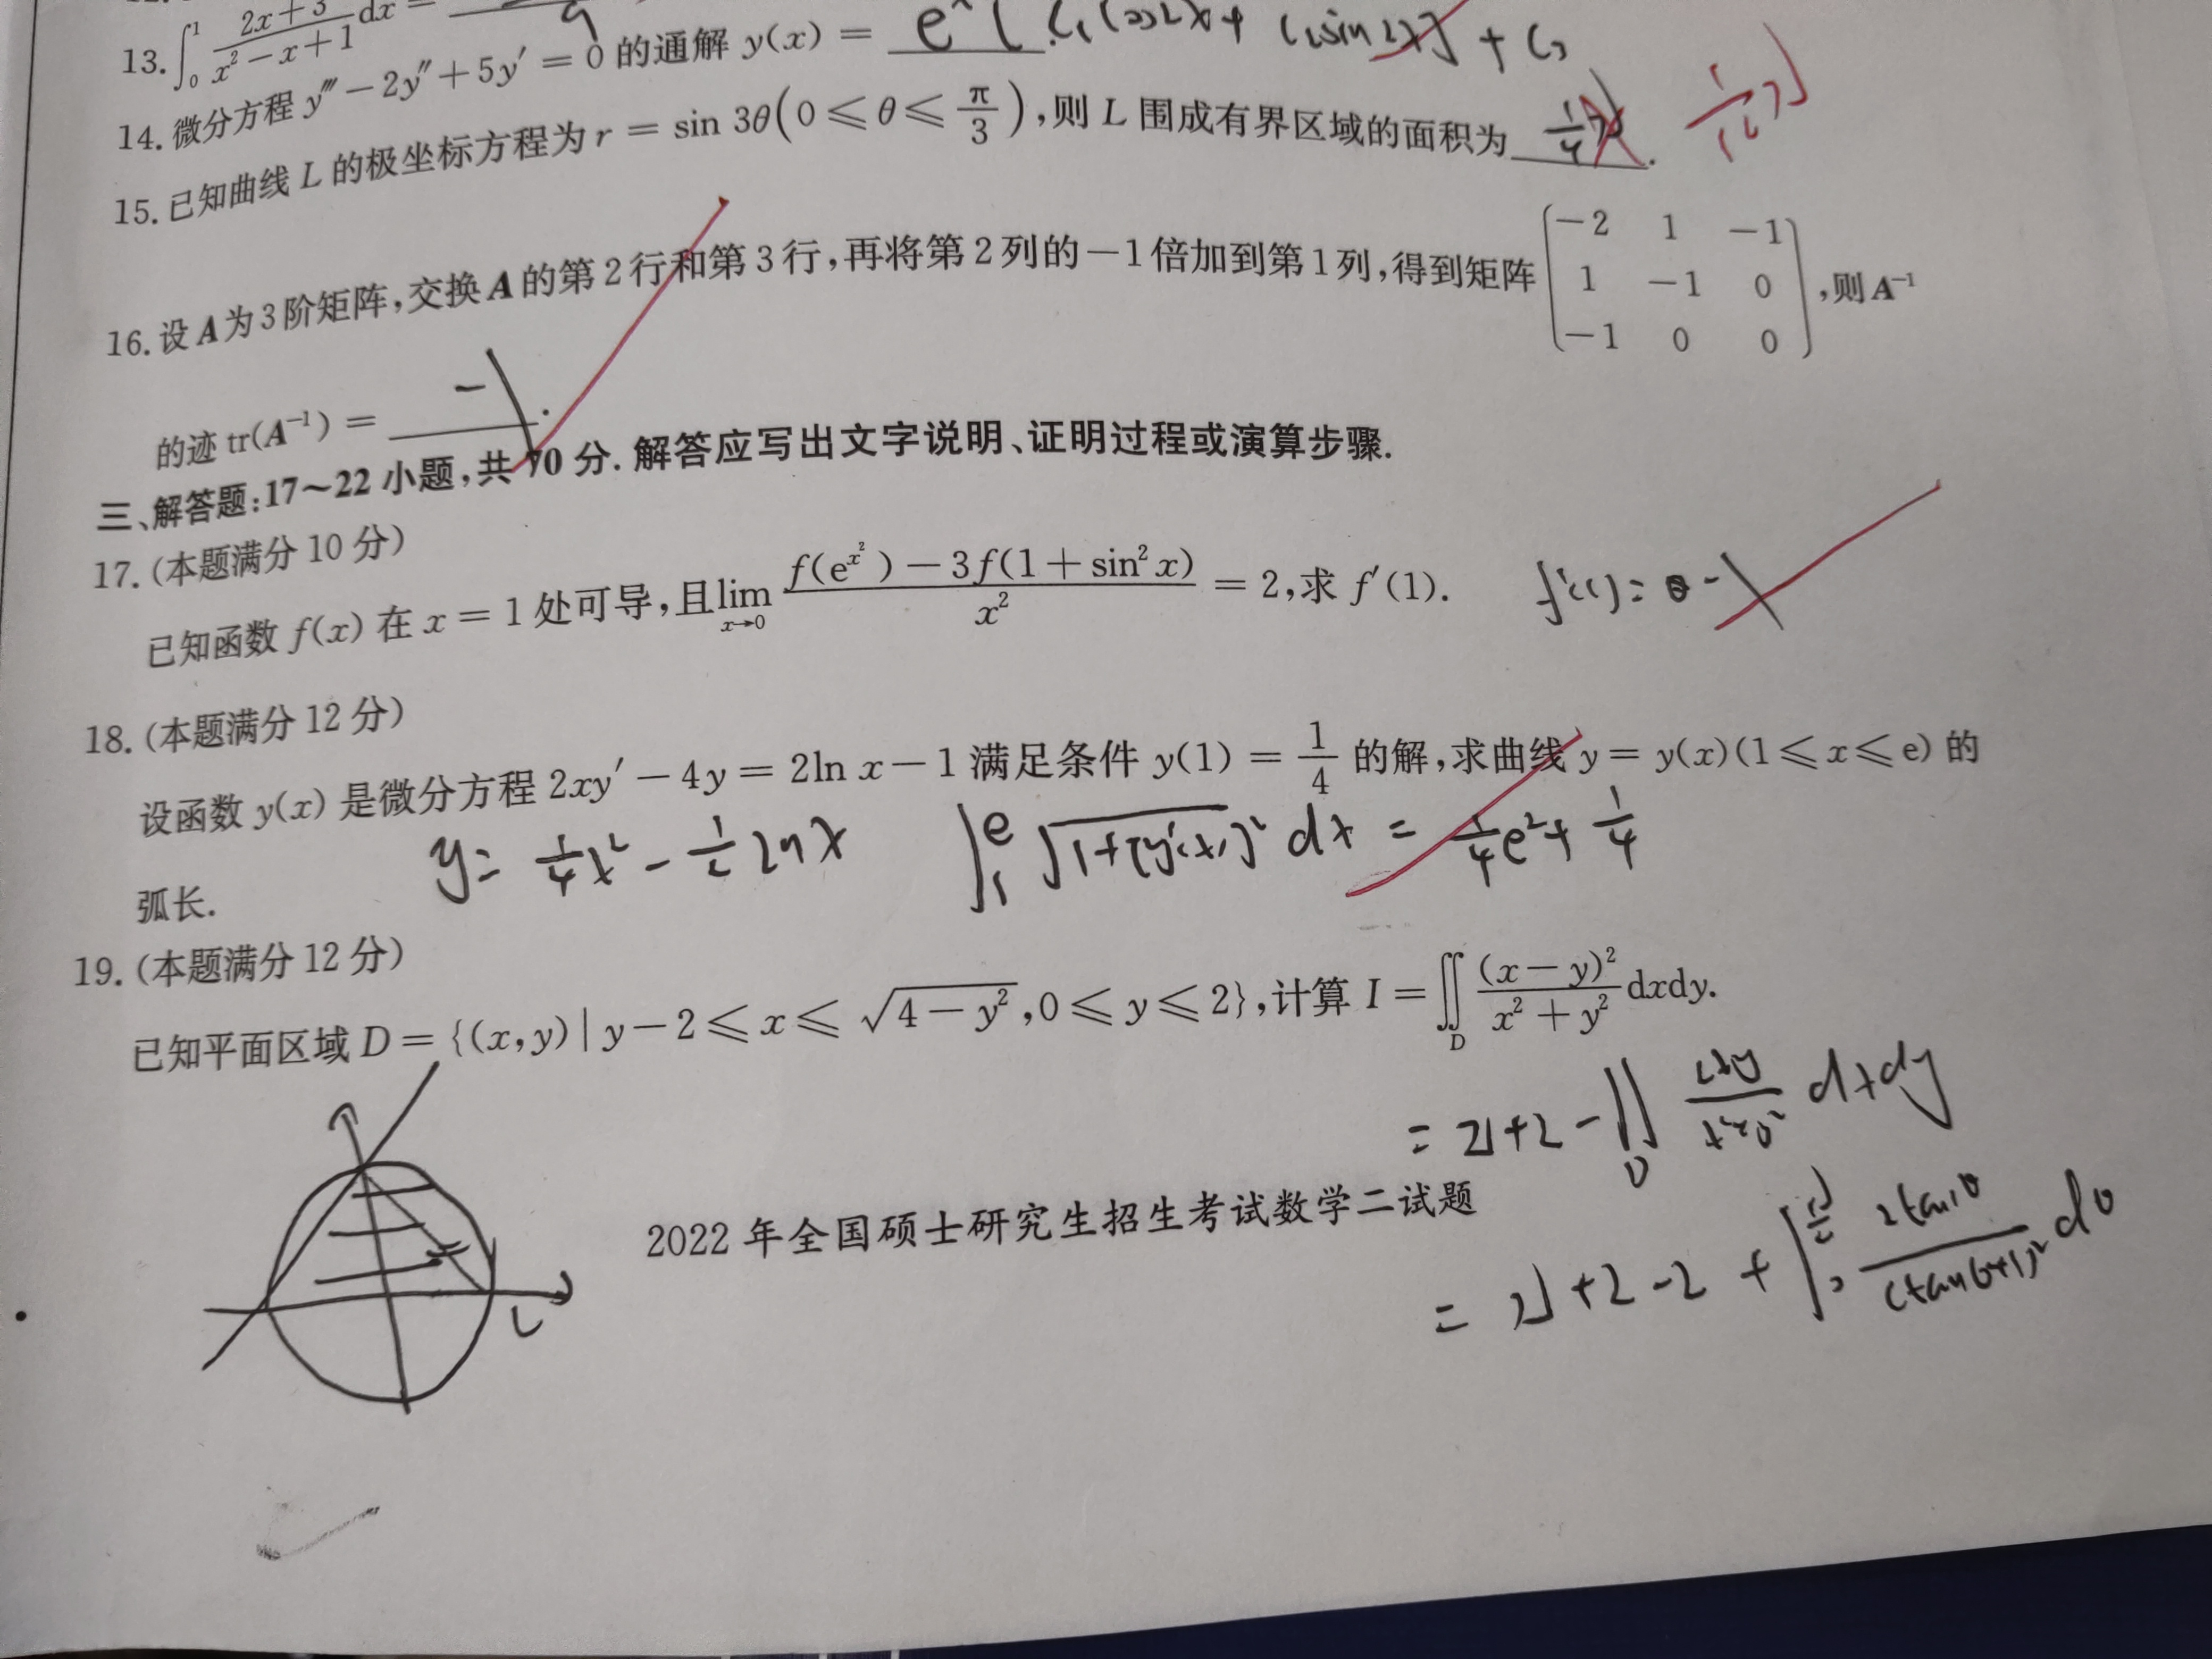 13. ∫₀¹ (2x+3)/(x²−x+1) dx =
14. 微分方程 y‴−2y″+5y′=0 的通解 y(x) = e^x [C₁cos2x + C₂sin2x] + C₃
15. 已知曲线 L 的极坐标方程为 r = sin 3θ(0⩽θ⩽π/3),则 L 围成有界区域的面积为 1/4π. 1/12 π
16. 设 A 为 3 阶矩阵,交换 A 的第 2 行和第 3 行,再将第 2 列的 −1 倍加到第 1 列,得到矩阵 (−2 1 −1; 1 −1 0; −1 0 0),则 A⁻¹
的迹 tr(A⁻¹) = −1.
三、解答题:17～22 小题,共 70 分. 解答应写出文字说明、证明过程或演算步骤.
17. (本题满分 10 分)
已知函数 f(x) 在 x = 1 处可导,且 lim_{x→0} [f(e^{x²})−3f(1+sin² x)]/x² = 2,求 f′(1). f′(1) = −1
18. (本题满分 12 分)
设函数 y(x) 是微分方程 2xy′−4y = 2ln x−1 满足条件 y(1) = 1/4 的解,求曲线 y = y(x)(1⩽x⩽e) 的
弧长.
y = 1/4 x² − 1/2 ln x ∫₁^e √(1+[y′(x)]²) dx = 1/4 e² + 1/4
19. (本题满分 12 分)
已知平面区域 D = {(x,y) | y−2⩽x⩽√(4−y²),0⩽y⩽2},计算 I = ∬_D (x−y)²/(x²+y²) dxdy.
= π+2 − ∬_D 2xy/(x²+y²) dxdy
2022 年全国硕士研究生招生考试数学二试题
= π+2−2 +